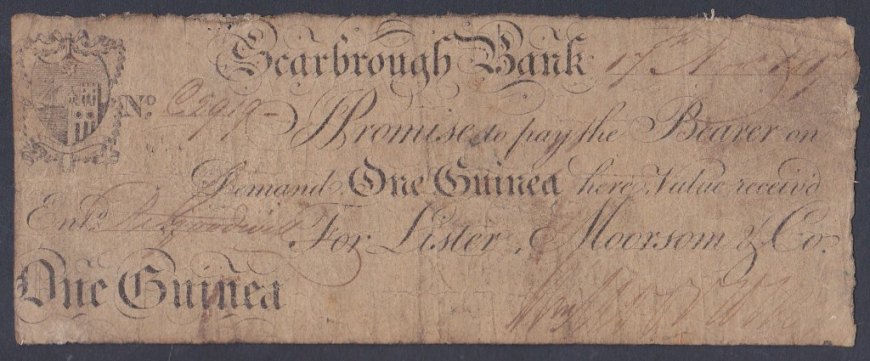 Scarbrough Bank 17th
No. C2919
I Promise to pay the Bearer on
Demand One Guinea here Value receiv'd
Entd. For Lister, Moorsom & Co.
One Guinea